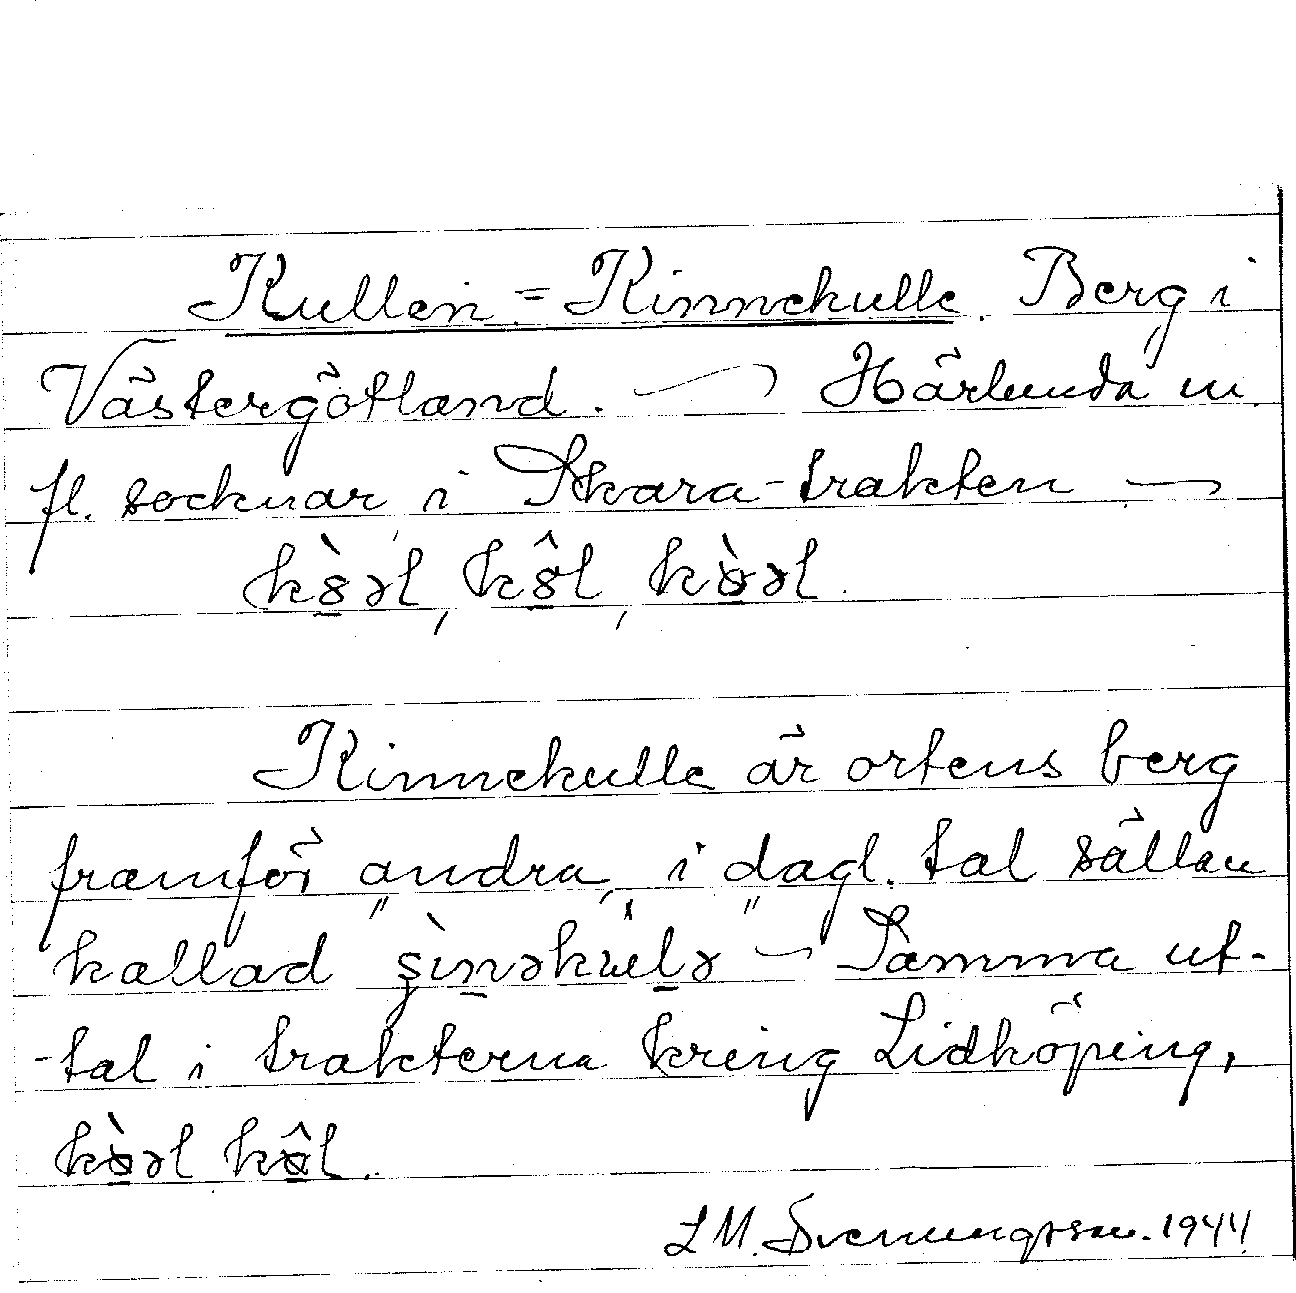 Kullen = Kinnekulle. Berg i
Västergötland. — Härlunda m.
fl. socknar i Skara-trakten —
kȍəl, kôl, kȍəl.
Kinnekulle är ortens berg
framför "andra", i "dagl. tal sällan
kallad şìnəkulə — Samma ut-
-tal i trakterna kring Lidköping,
kòəl kôl.
L M. Svenungsson. 1944